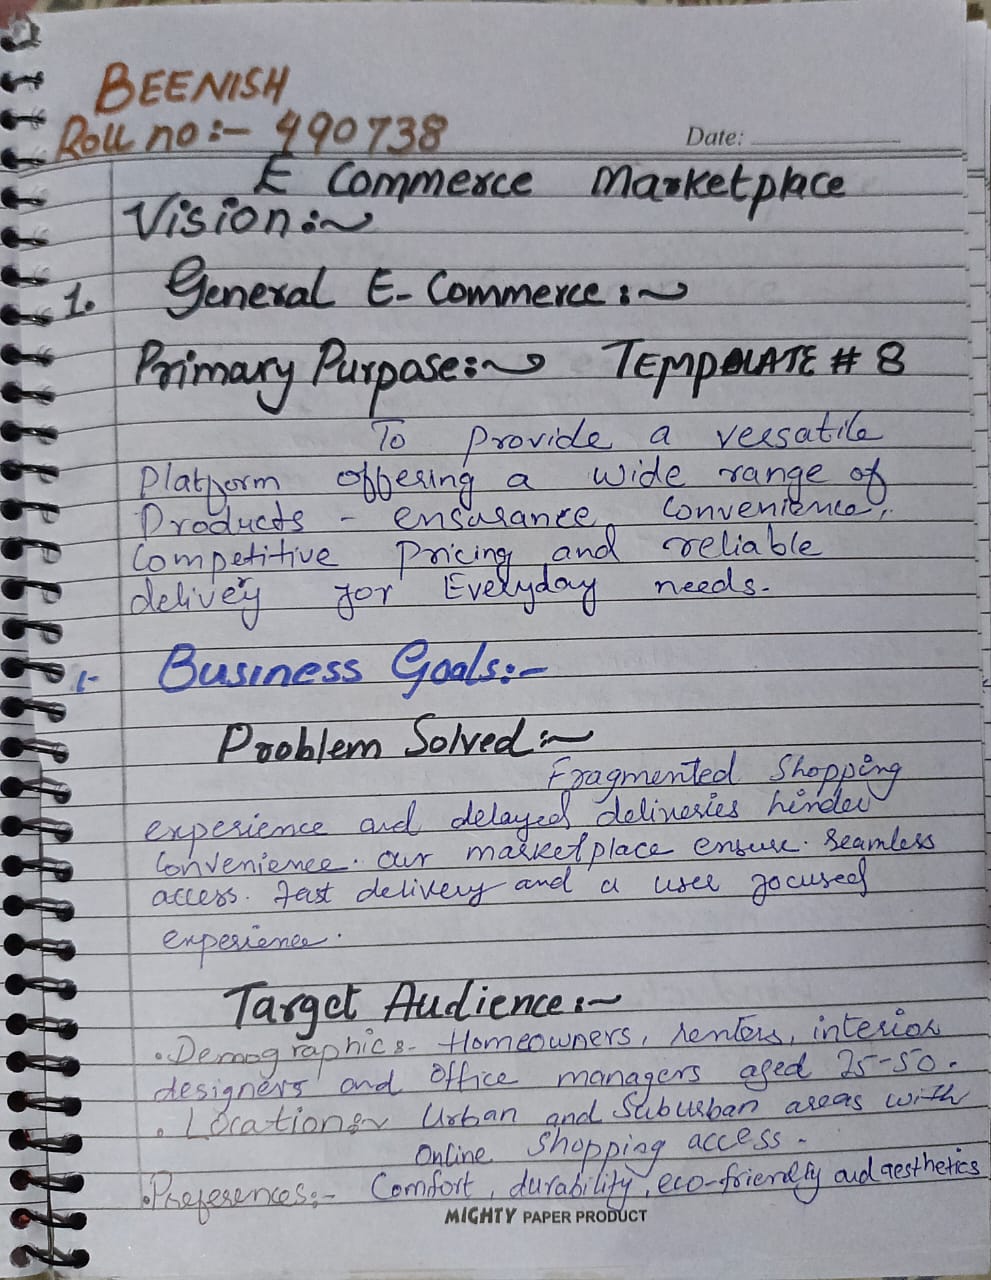 BEENISH
Roll no:- 490738
Date:
E Commerce Marketplace
Vision:~
1. General E-Commerce:~
Primary Purpose:~ TEMPLATE # 8
To provide a versatile
Platform offering a wide range of
Products - ensurance, Convenience,
Competitive Pricing and reliable
delivey for Everyday needs.
1- Business Goals:-
Problem Solved:~
Fragmented Shopping
experience and delayed deliveries hinder
Convenience. our marketplace ensure. Seamless
access. fast delivery and a user focused
experience.
Target Audience:~
• Demographics- Homeowners, renters, interior
designers and Office managers aged 25-50.
• Location:~ Urban and Suburban areas with
Online Shopping access.
• Preferences:- Comfort, durability, eco-friendly and aesthetics
MIGHTY PAPER PRODUCT